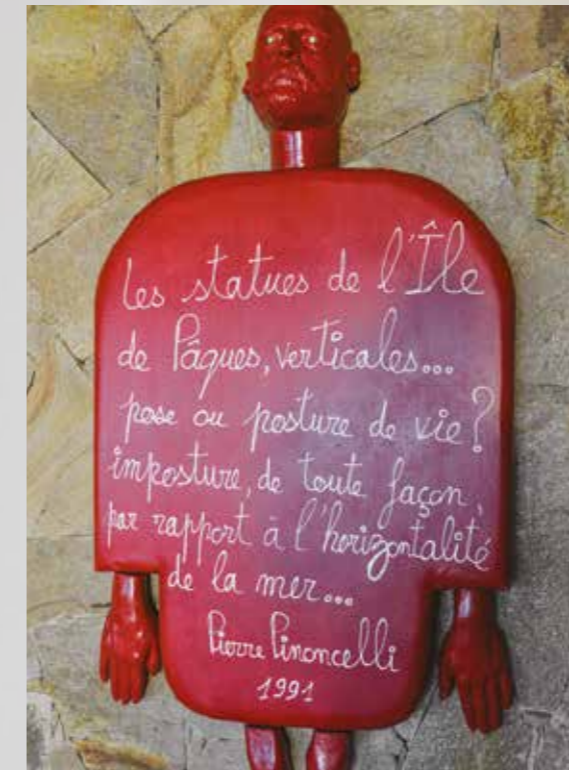 Les statues de l'Île
de Pâques, verticales...
pose ou posture de vie?
imposture, de toute façon,
par rapport à l'horizontalité
de la mer...
Pierre Pinoncelli
1991